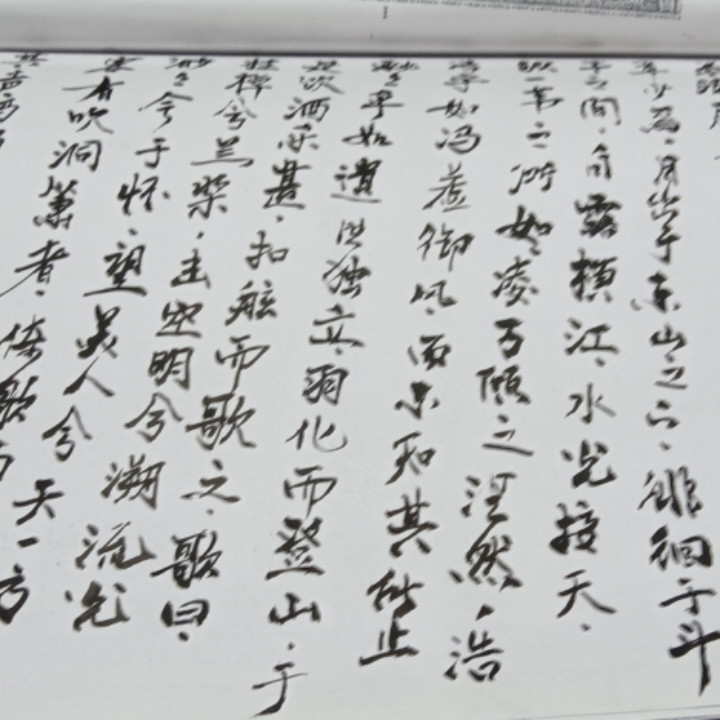 少焉，月出于东山之上，徘徊于斗
之间，白露横江，水光接天。
纵一苇之所如，凌万顷之茫然，浩
乎如冯虚御风，而不知其所止
飘飘乎如遗世独立，羽化而登山，于
是饮酒乐甚，扣舷而歌之，歌曰，
桂棹兮兰桨，击空明兮溯流光
渺渺兮于怀，望美人兮天一方
客有吹洞箫者，倚歌而
其声呜